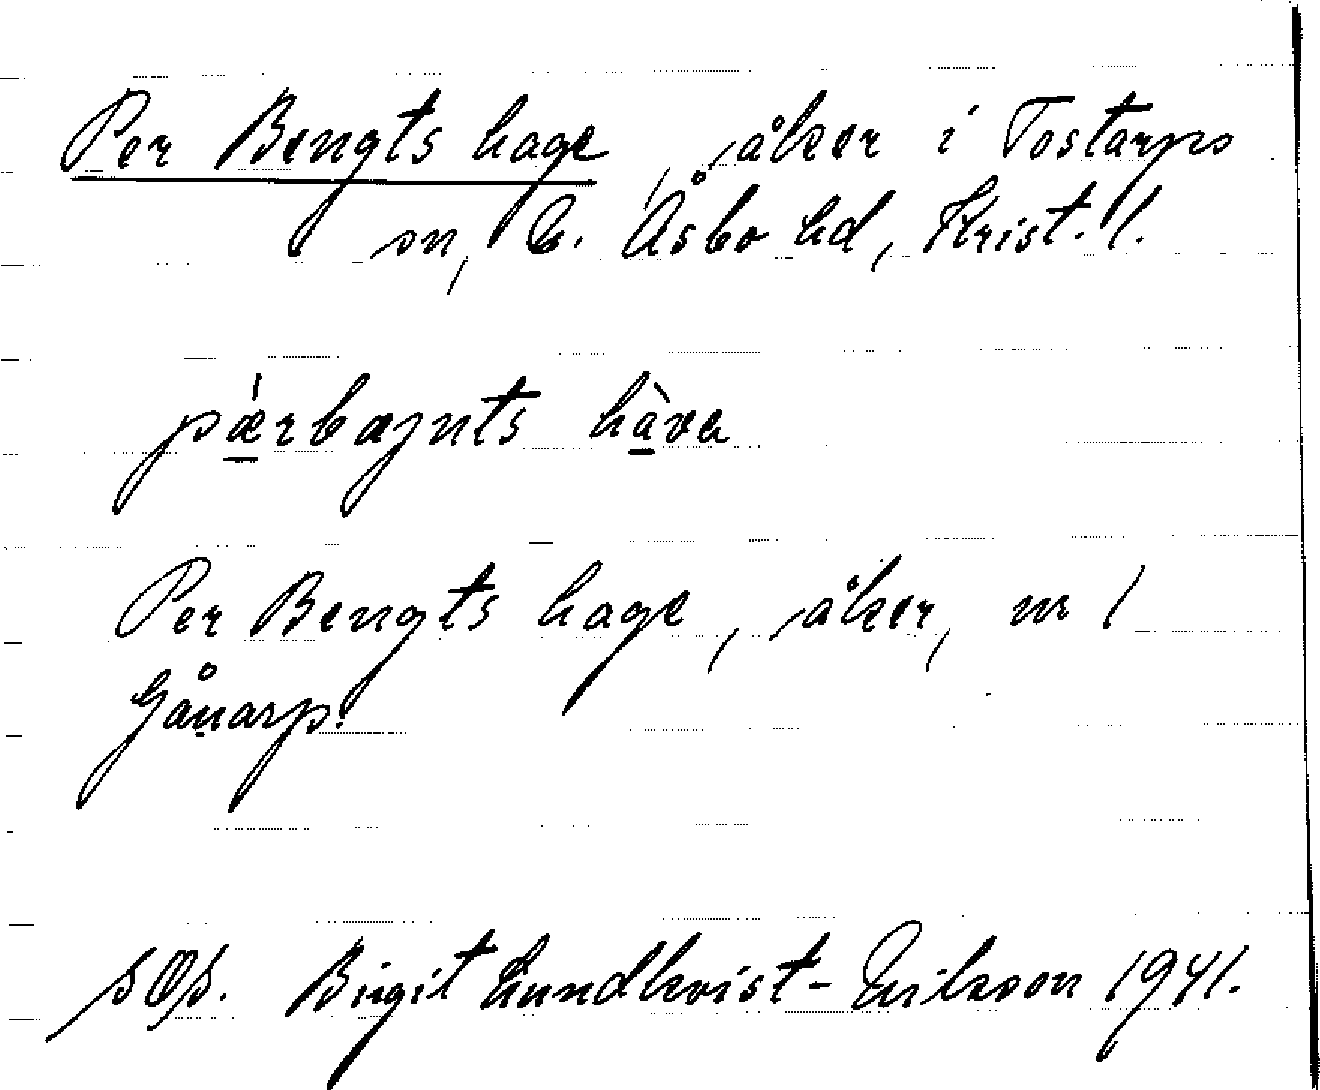 Per Bengts hage, åker i Tostarps
sn, N. Åsbo hd, Krist. l.
pǽrbæŋnts hàva
Per Bengts hage, åker, nr 1
Gånarp.
SOS. Birgit Lundkvist-Erikson 1941.